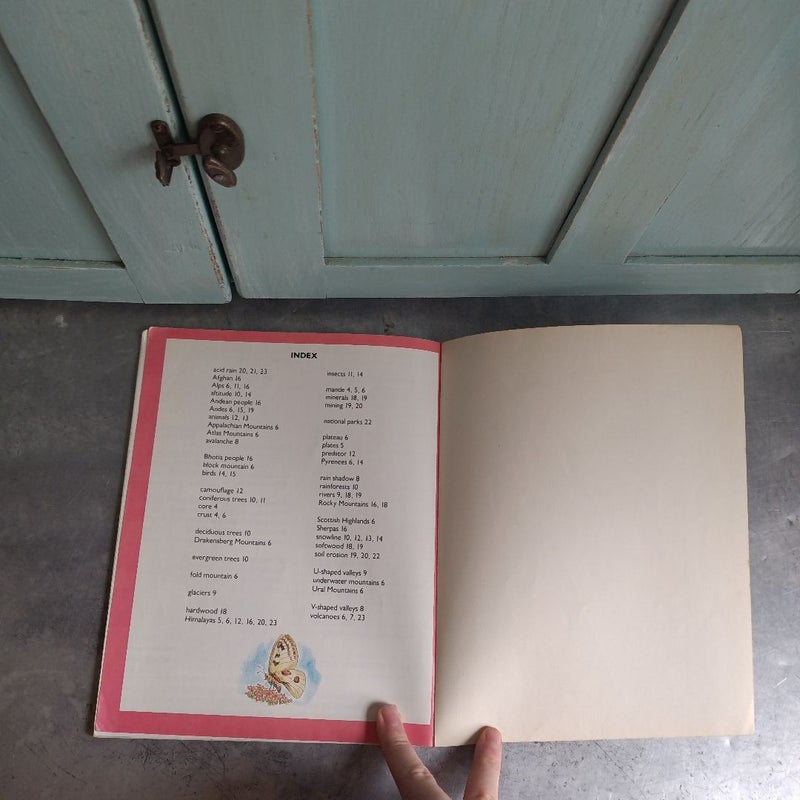 INDEX
acid rain 20, 21, 23
Afghan 16
Alps 6, 11, 16
altitude 10, 14
Andean people 16
Andes 6, 15, 19
animals 12, 13
Appalachian Mountains 6
Atlas Mountains 6
avalanche 8
Bhotia people 16
block mountain 6
birds 14, 15
camouflage 12
coniferous trees 10, 11
core 4
crust 4, 6
deciduous trees 10
Drakensberg Mountains 6
evergreen trees 10
fold mountain 6
glaciers 9
hardwood 18
Himalayas 5, 6, 12, 16, 20, 23
insects 11, 14
mantle 4, 5, 6
minerals 18, 19
mining 19, 20
national parks 22
plateau 6
plates 5
predator 12
Pyrenees 6, 14
rain shadow 8
rainforests 10
rivers 9, 18, 19
Rocky Mountains 16, 18
Scottish Highlands 6
Sherpas 16
snowline 10, 12, 13, 14
softwood 18, 19
soil erosion 19, 20, 22
U-shaped valleys 9
underwater mountains 6
Ural Mountains 6
V-shaped valleys 8
volcanoes 6, 7, 23